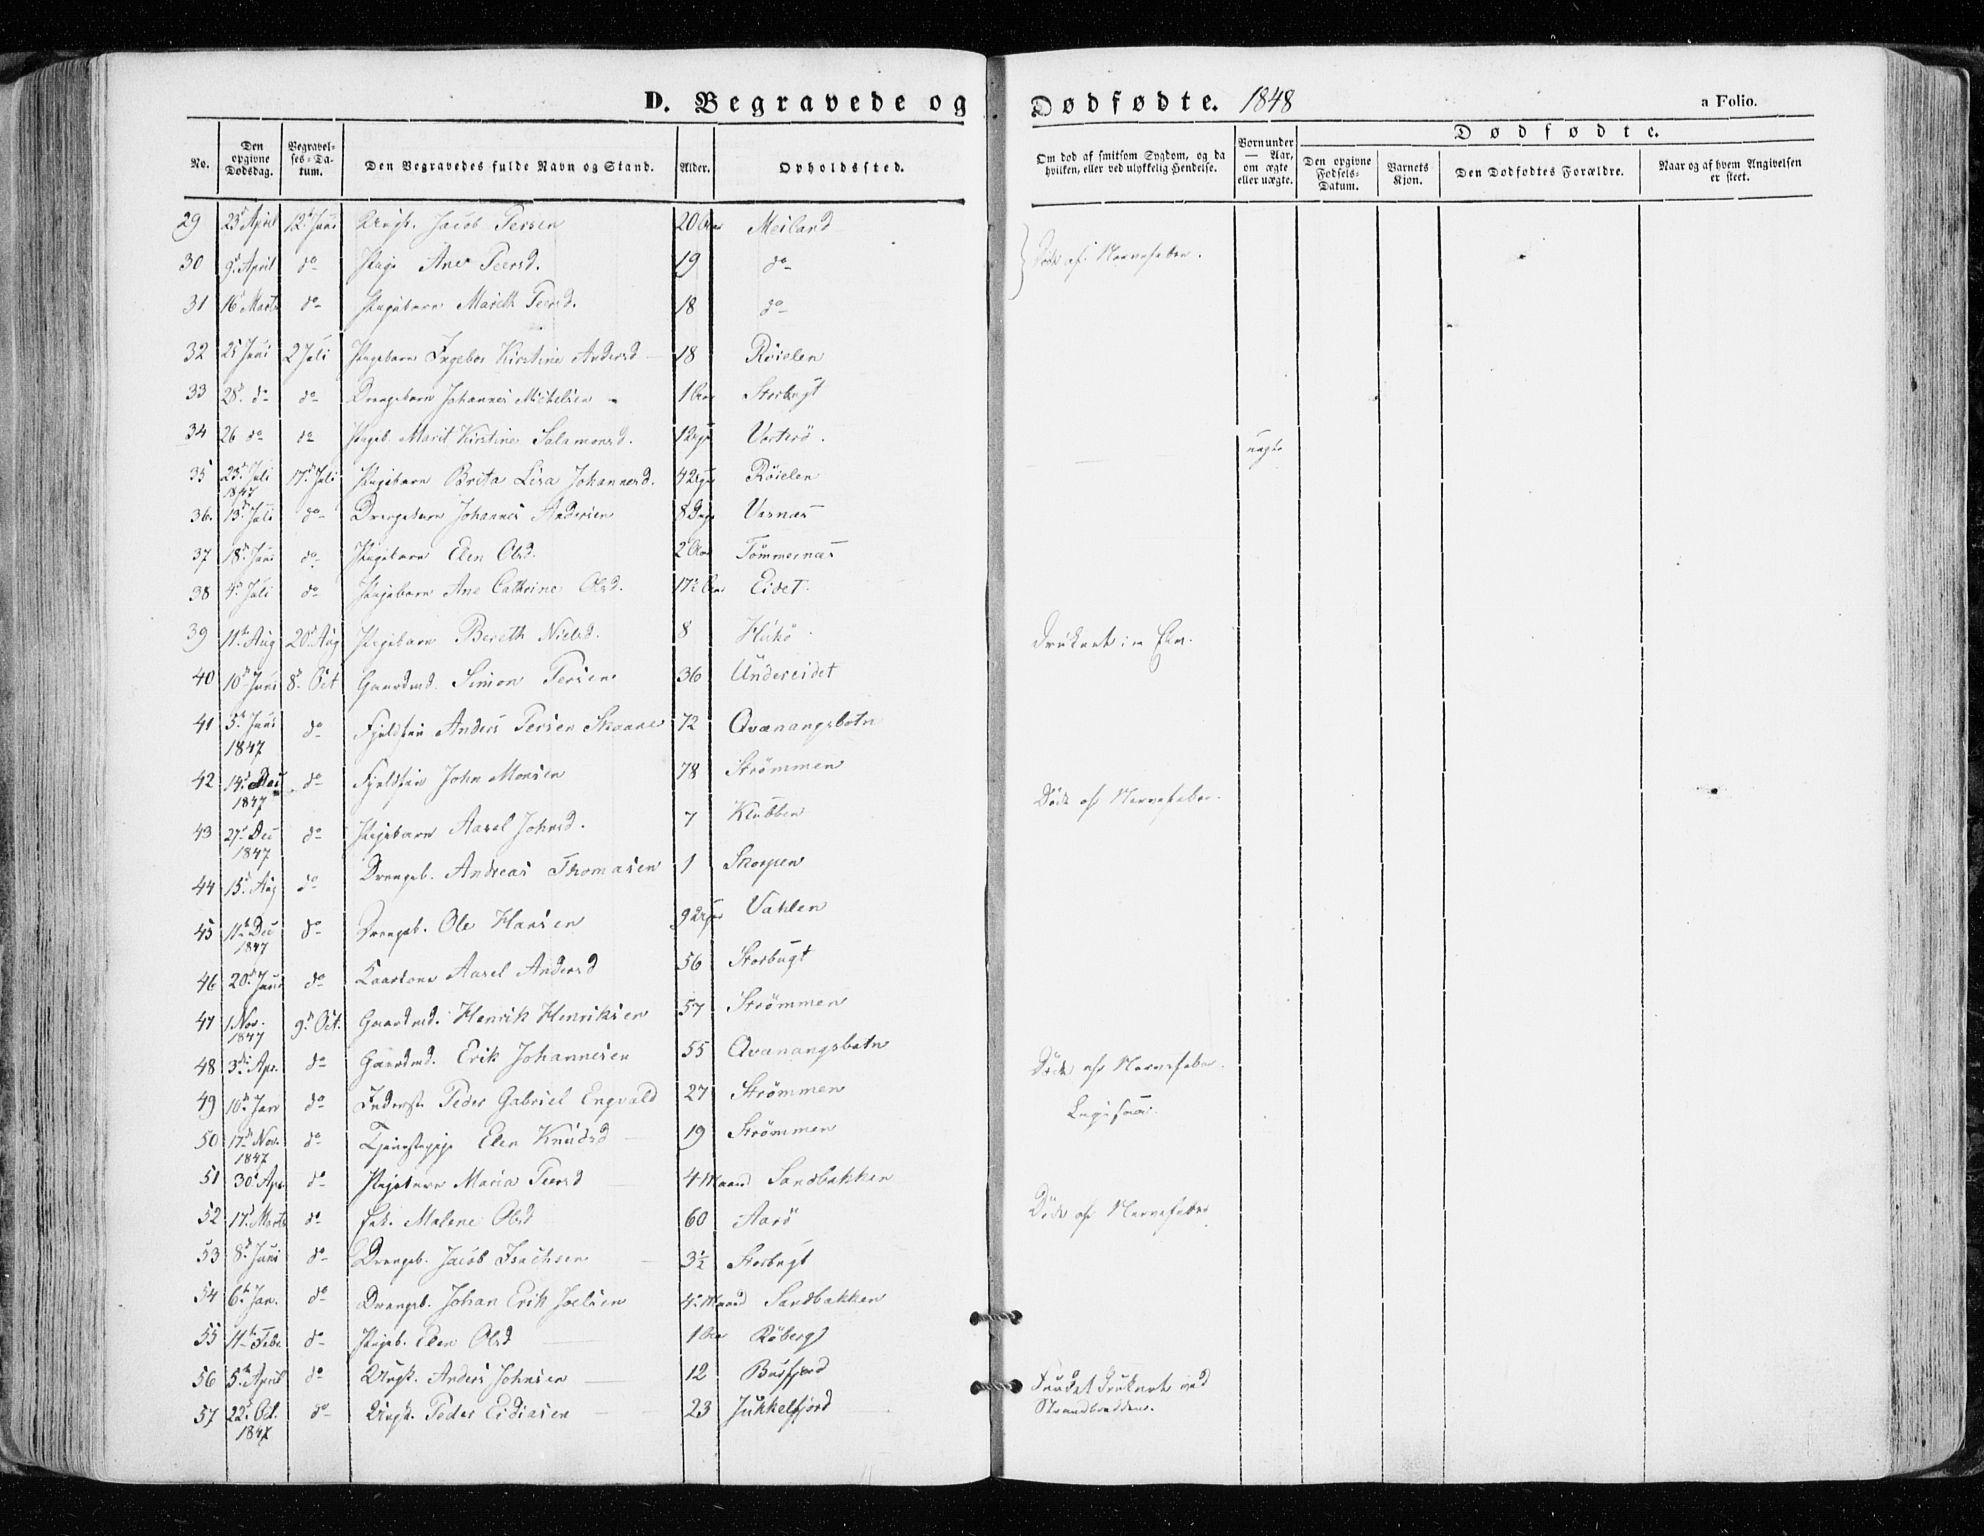 D. Begravede og Dødfødte. 1848
a Folio.
No. | Den opgivne Dødsdag. | Begravelses-Datum. | Den Begravedes fulde Navn og Stand. | Alder. | Opholdssted. | Om død af smitsom Sygdom, og da hvilken, eller ved ulykkelig Hendelse. | Børn under — Aar, om ægte eller uægte. | Dødfødte.
Den opgivne Fødsels-Datum. | Barnets Kjøn. | Den Dødfødtes Forældre. | Naar og af hvem Angivelsen er skeet.
29 | 23d April | 12t Juni | Ungk. Jacob Persen | 20 Aar | Meiland
30 | 9d April | do | Pige Ane Peersd. | 19 | do | Døde af Nervefeber.
31 | 16 Marts | do | Pigebarn Marith Peersd. | 18 | do
32 | 25 Juni | 2 Juli | Pigebarn Ingebor Kirstine Andersd | 18 | Röielen
33 | 28d do | do | Drengebarn Johannes Michelsen | 1 Aar | Storbugt
34 | 26 do | do | Pigeb. Marit Kirstine Salamonsd. | 12 | Vorterö. | uægte
35 | 23d Juli 1847 | 17d Juli | Pigebarn Brita Lisa Johannesd. | 4 | Röielen
36. | 13d Juli | do | Drengebarn Johannes Andersen | 8 Dage | Varnæs
37 | 18d Juni | do | Pigebarn Elen Olsd. | 2 Aar | Tömmernæs
38 | 4d Juli | do | Pigebarn Ane Cathrine Olsd. | 17½ Aar | Eidet.
39 | 11te Aug | 20d Aug | Pigebarn Bereth Nielsd. | 8 | Hukö | Druknet i en Elv.
40 | 10d Juni | 8d Oct | Gaardmd. Simon Persen | 36 | Undereidet
41 | 5te Juni 1847 | do | Fjeldfin Anders Persen Skaane | 72 | Qvænangsbotn
42 | 14d Dec 1847 | do | Fjeldfin John Monsen | 78 | Strömmen | Døde af Nervefeber.
43 | 27d Dec 1847 | do | Pigebarn Aasel Johnsd. | 7 | Klubben
44 | 15d Aug | do | Drengeb. Andreas Thomasen | 1 | Skorpen
45 | 11te Dec 1847 | do | Drengeb. Ole Hansen | 9 | Vahlen
46 | 20d Juni | do | Aasel Andersd | 56 | Storbugt
47 | 1 Nov. 1847 | 9d Oct. | Gaardmd. Henrik Henriksen | 57 | Strömmen
48 | 3die Apr. | do | Gaardmd. Erik Johannesen | 55 | Qvænangsbotn | Døde af Nervefeber.
49 | 10de Jan | do | Inderst. Peder Gabriel Engvald | 27 | Strömmen | Ligesaa.
50 | 17d Nov. 1847 | do | Tjenestepige Elen Knudsd | 19 | Strömmen
51 | 30d Apr | do | Pigebarn Maria Peersd | 4 Maaned | Sandbakken
52 | 17d Marts | do | Enk. Malene Olsd | 60 | Aarö | Døde af Nervefeber
53 | 8d Juni | do | Drengeb. Jacob Isachsen | 3½ | Storbugt
54 | 6te Jan. | do | Drengeb. Johan Erik Joelsen | 4 Maaned | Sandbakken
55 | 11te Febr | do | Pigeb. Elen Olsd | 1 Aar | Röbergt
56 | 5te April | do | Ungk. Anders Johnsen | 12 | Burfjord | Fundet druknet ved Strandbredden.
57 | 22d Oct. 1847 | do | Ungk. Peder Eidiasen | 23 | Jukkelfjord